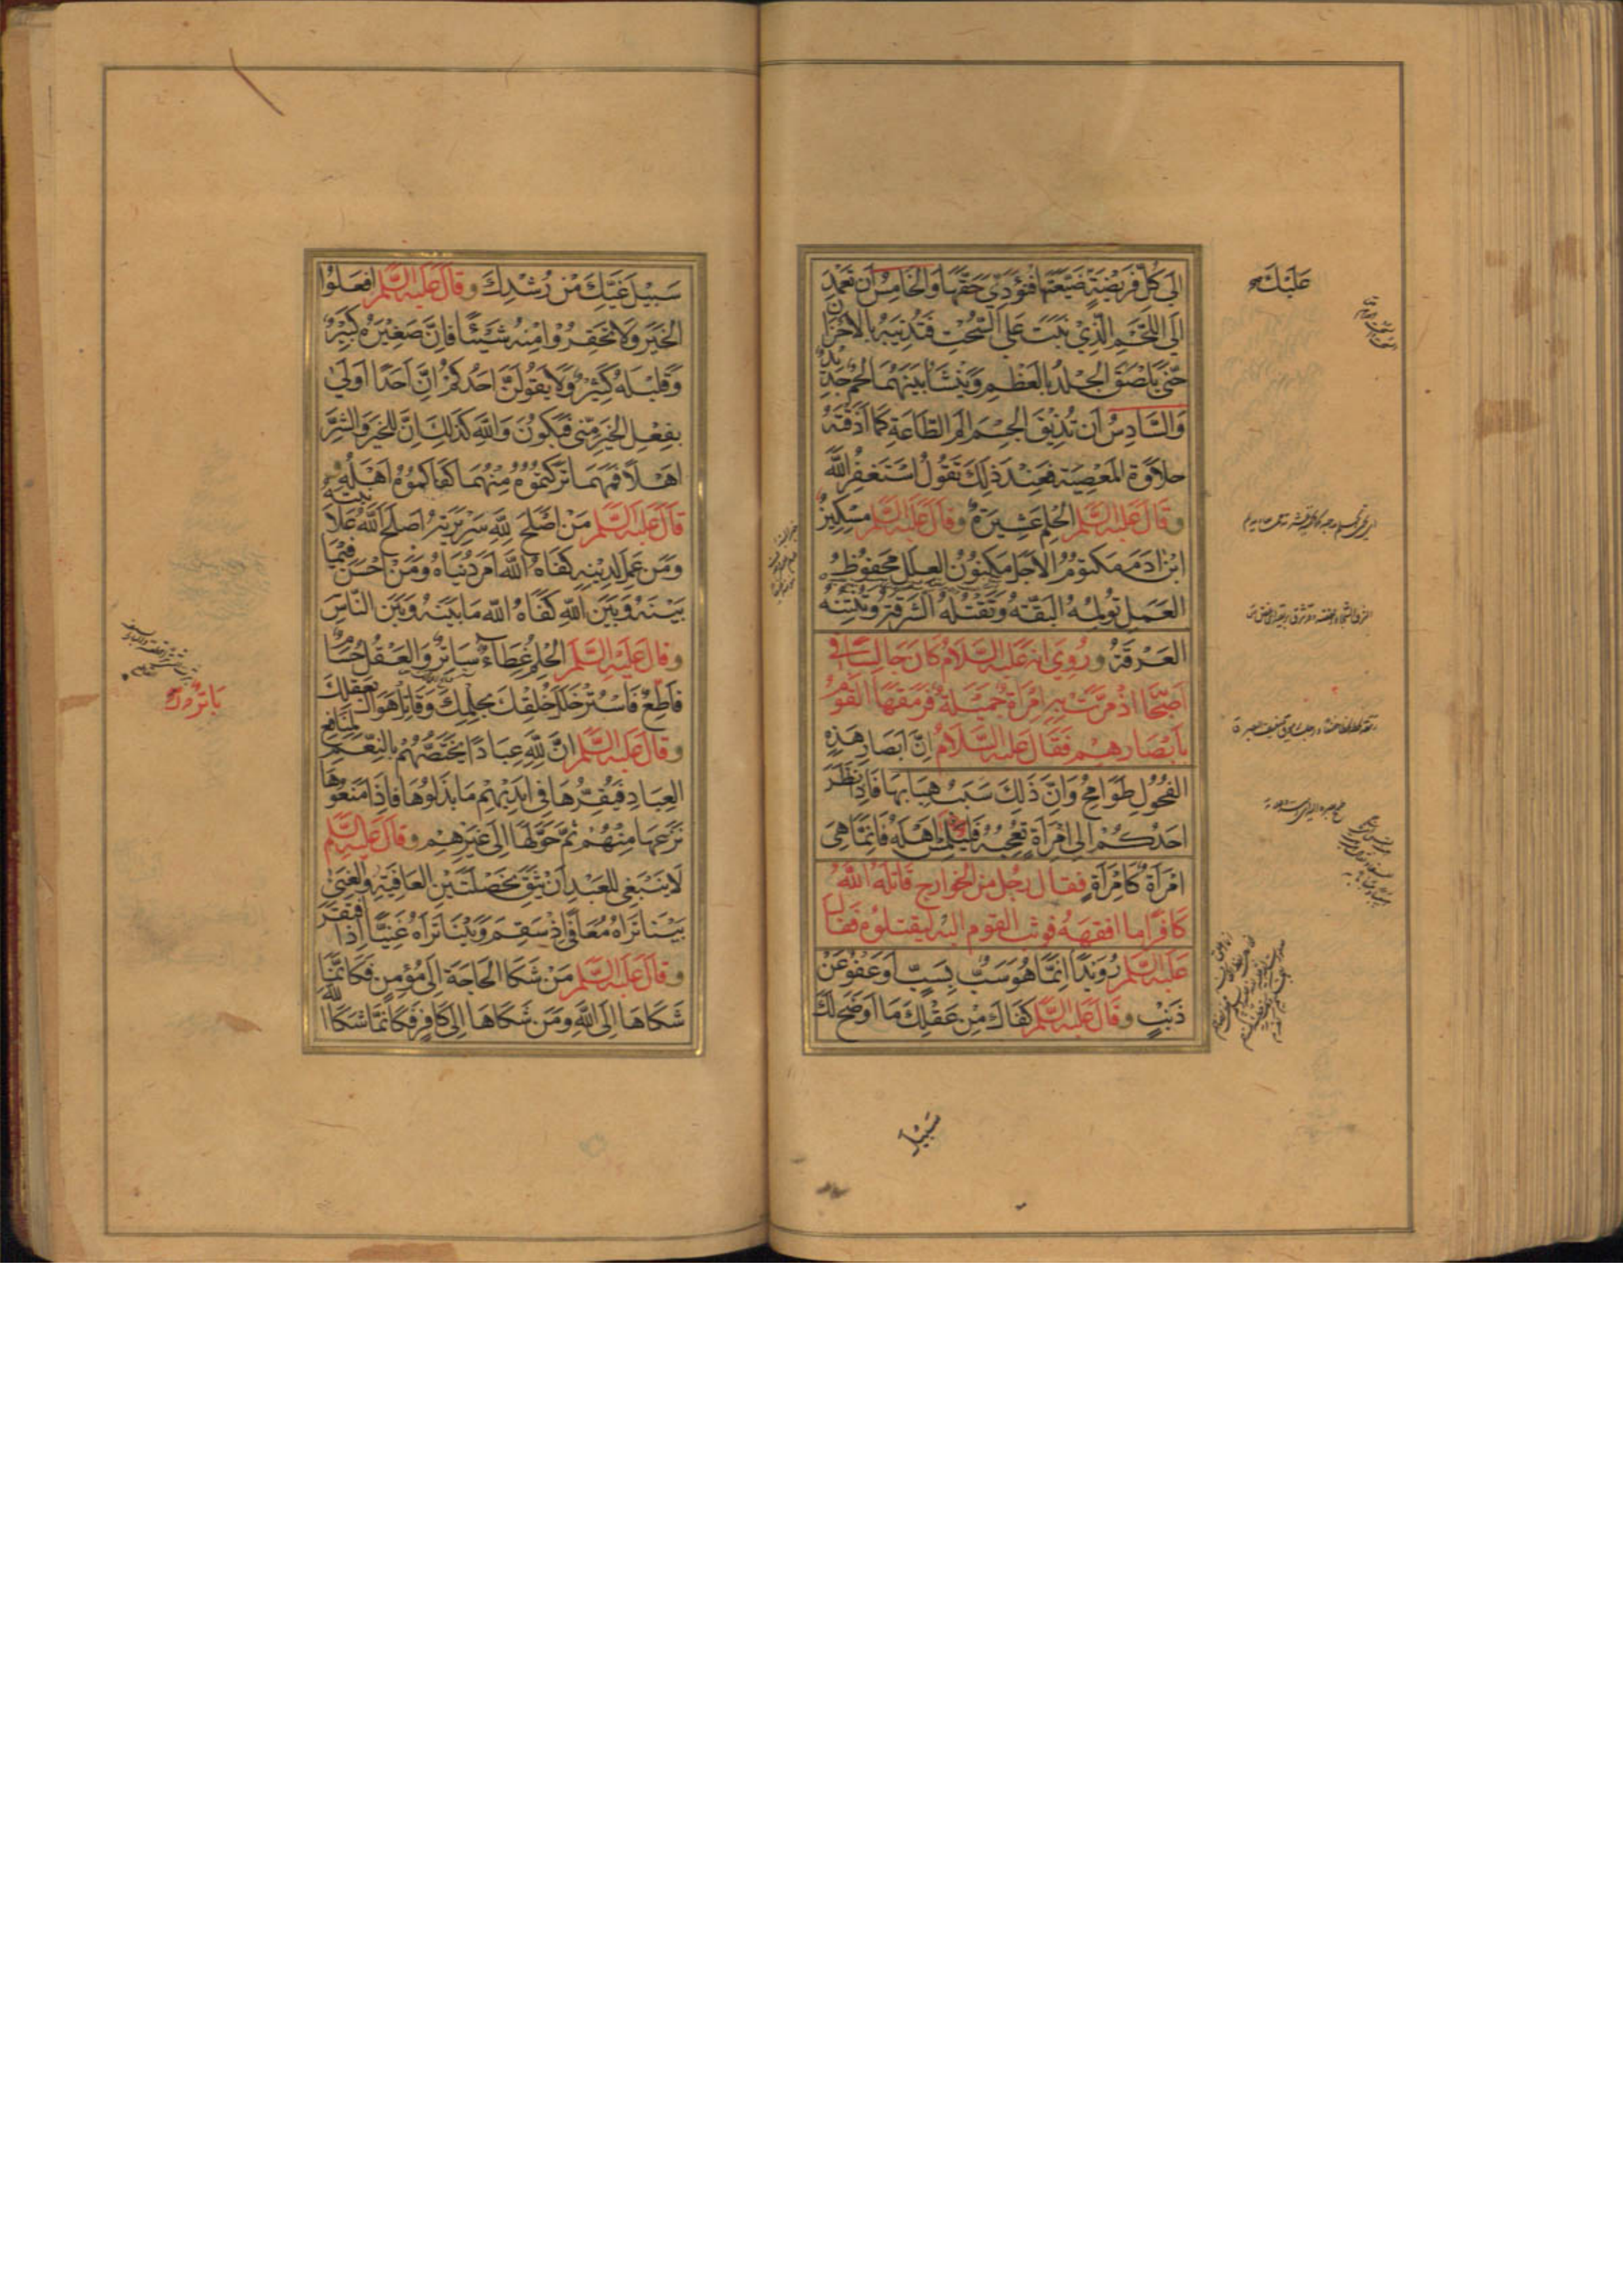 إِلَى كُلِّ فَرِيضَةٍ ضَيَّعْتَهَا فَتُؤَدِّيَ حَقَّهَا وَالْخَامِسُ أَنْ تَعْمِدَ
إِلَى اللَّحْمِ الَّذِي نَبَتَ عَلَى السُّحْتِ فَتُذِيبَهُ بِالْأَحْزَانِ
حَتَّى يَلْصَقَ الْجِلْدُ بِالْعَظْمِ وَيَنْشَأَ بَيْنَهُمَا لَحْمٌ جَدِيدٌ
وَالسَّادِسُ أَنْ تُذِيقَ الْجِسْمَ أَلَمَ الطَّاعَةِ كَمَا أَذَقْتَهُ
حَلَاوَةَ الْمَعْصِيَةِ فَعِنْدَ ذَلِكَ تَقُولُ أَسْتَغْفِرُ اللَّهَ
وَقَالَ عَلَيْهِ السَّلَمُ الْحِلْمُ عَشِيرَةٌ وَقَالَ عَلَيْهِ السَّلَمُ مِسْكِينٌ
ابْنُ آدَمَ مَكْتُومُ الْأَجَلِ مَكْنُونُ الْعِلَلِ مَحْفُوظُ
الْعَمَلِ تُؤْلِمُهُ الْبَقَّةُ وَتَقْتُلُهُ الشَّرْقَةُ وَتُنْتِنُهُ
الْعَرْقَةُ وَرُوِيَ أَنَّهُ عَلَيْهِ السَّلَامُ كَانَ جَالِسًا فِي
أَصْحَابِهِ إِذْ مَرَّتْ بِهِمُ امْرَأَةٌ جَمِيلَةٌ فَرَمَقَهَا الْقَوْمُ
بِأَبْصَارِهِمْ فَقَالَ عَلَيْهِ السَّلَامُ إِنَّ أَبْصَارَ هَذِهِ
الْفُحُولِ طَوَامِحُ وَإِنَّ ذَلِكَ سَبَبُ هِبَابِهَا فَإِذَا نَظَرَ
أَحَدُكُمْ إِلَى امْرَأَةٍ تُعْجِبُهُ فَلْيَلْمِسْ أَهْلَهُ فَإِنَّمَا هِيَ
امْرَأَةٌ كَامْرَأَةٍ فَقَالَ رَجُلٌ مِنَ الْخَوَارِجِ قَاتَلَهُ اللَّهُ
كَافِرًا مَا أَفْقَهَهُ فَوَثَبَ الْقَوْمُ إِلَيْهِ لِيَقْتُلُوهُ فَقَالَ
عَلَيْهِ السَّلَمُ رُوَيْدًا إِنَّمَا هُوَ سَبٌّ بِسَبٍّ أَوْ عَفْوٌ عَنْ
ذَنْبٍ وَقَالَ عَلَيْهِ السَّلَمُ كَفَاكَ مِنْ عَقْلِكَ مَا أَوْضَحَ لَكَ
سَبِيلَ
عَلَيْكَ
سَبِيلَ غَيِّكَ مِنْ رُشْدِكَ وَقَالَ عَلَيْهِ السَّلَمُ افْعَلُوا
الْخَيْرَ وَلَا تُحَقِّرُوا مِنْهُ شَيْئًا فَإِنَّ صَغِيرَهُ كَبِيرٌ
وَقَلِيلَهُ كَثِيرٌ وَلَا يَقُولَنَّ أَحَدُكُمْ إِنَّ أَحَدًا أَوْلَى
بِفِعْلِ الْخَيْرِ مِنِّي فَيَكُونَ وَاللَّهِ كَذَلِكَ إِنَّ لِلْخَيْرِ وَالشَّرِّ
أَهْلًا فَمَهْمَا تَرَكْتُمُوهُ مِنْهُمَا كَفَاكُمُوهُ أَهْلُهُ وَ
قَالَ عَلَيْهِ السَّلَمُ مَنْ أَصْلَحَ لِلَّهِ سَرِيرَتَهُ أَصْلَحَ اللَّهُ عَلَانِيَتَهُ
وَمَنْ عَمِلَ لِدِينِهِ كَفَاهُ اللَّهُ أَمْرَ دُنْيَاهُ وَمَنْ أَحْسَنَ فِيمَا
بَيْنَهُ وَبَيْنَ اللَّهِ كَفَاهُ اللَّهُ مَا بَيْنَهُ وَبَيْنَ النَّاسِ
وَقَالَ عَلَيْهِ السَّلَمُ الْحِلْمُ غِطَاءٌ سَاتِرٌ وَالْعَقْلُ حُسَامٌ
قَاطِعٌ فَاسْتُرْ خَلَلَ خُلُقِكَ بِحِلْمِكَ وَقَاتِلْ هَوَاكَ بِعَقْلِكَ
وَقَالَ عَلَيْهِ السَّلَمُ إِنَّ لِلَّهِ عِبَادًا يَخْتَصُّهُمْ بِالنِّعَمِ لِمَنَافِعِ
الْعِبَادِ فَيُقِرُّهَا فِي أَيْدِيهِمْ مَا بَذَلُوهَا فَإِذَا مَنَعُوهَا
نَزَعَهَا مِنْهُمْ ثُمَّ حَوَّلَهَا إِلَى غَيْرِهِمْ وَقَالَ عَلَيْهِ السَّلَمُ
لَا يَنْبَغِي لِلْعَبْدِ أَنْ يَثِقَ بِخَصْلَتَيْنِ الْعَافِيَةِ وَالْغِنَى
بَيْنَا تَرَاهُ مُعَافًى إِذْ سَقِمَ وَبَيْنَا تَرَاهُ غَنِيًّا إِذَا افْتَقَرَ
وَقَالَ عَلَيْهِ السَّلَمُ مَنْ شَكَا الْحَاجَةَ إِلَى مُؤْمِنٍ فَكَأَنَّمَا
شَكَاهَا إِلَى اللَّهِ وَمَنْ شَكَاهَا إِلَى كَافِرٍ فَكَأَنَّمَا شَكَا اللَّهَ